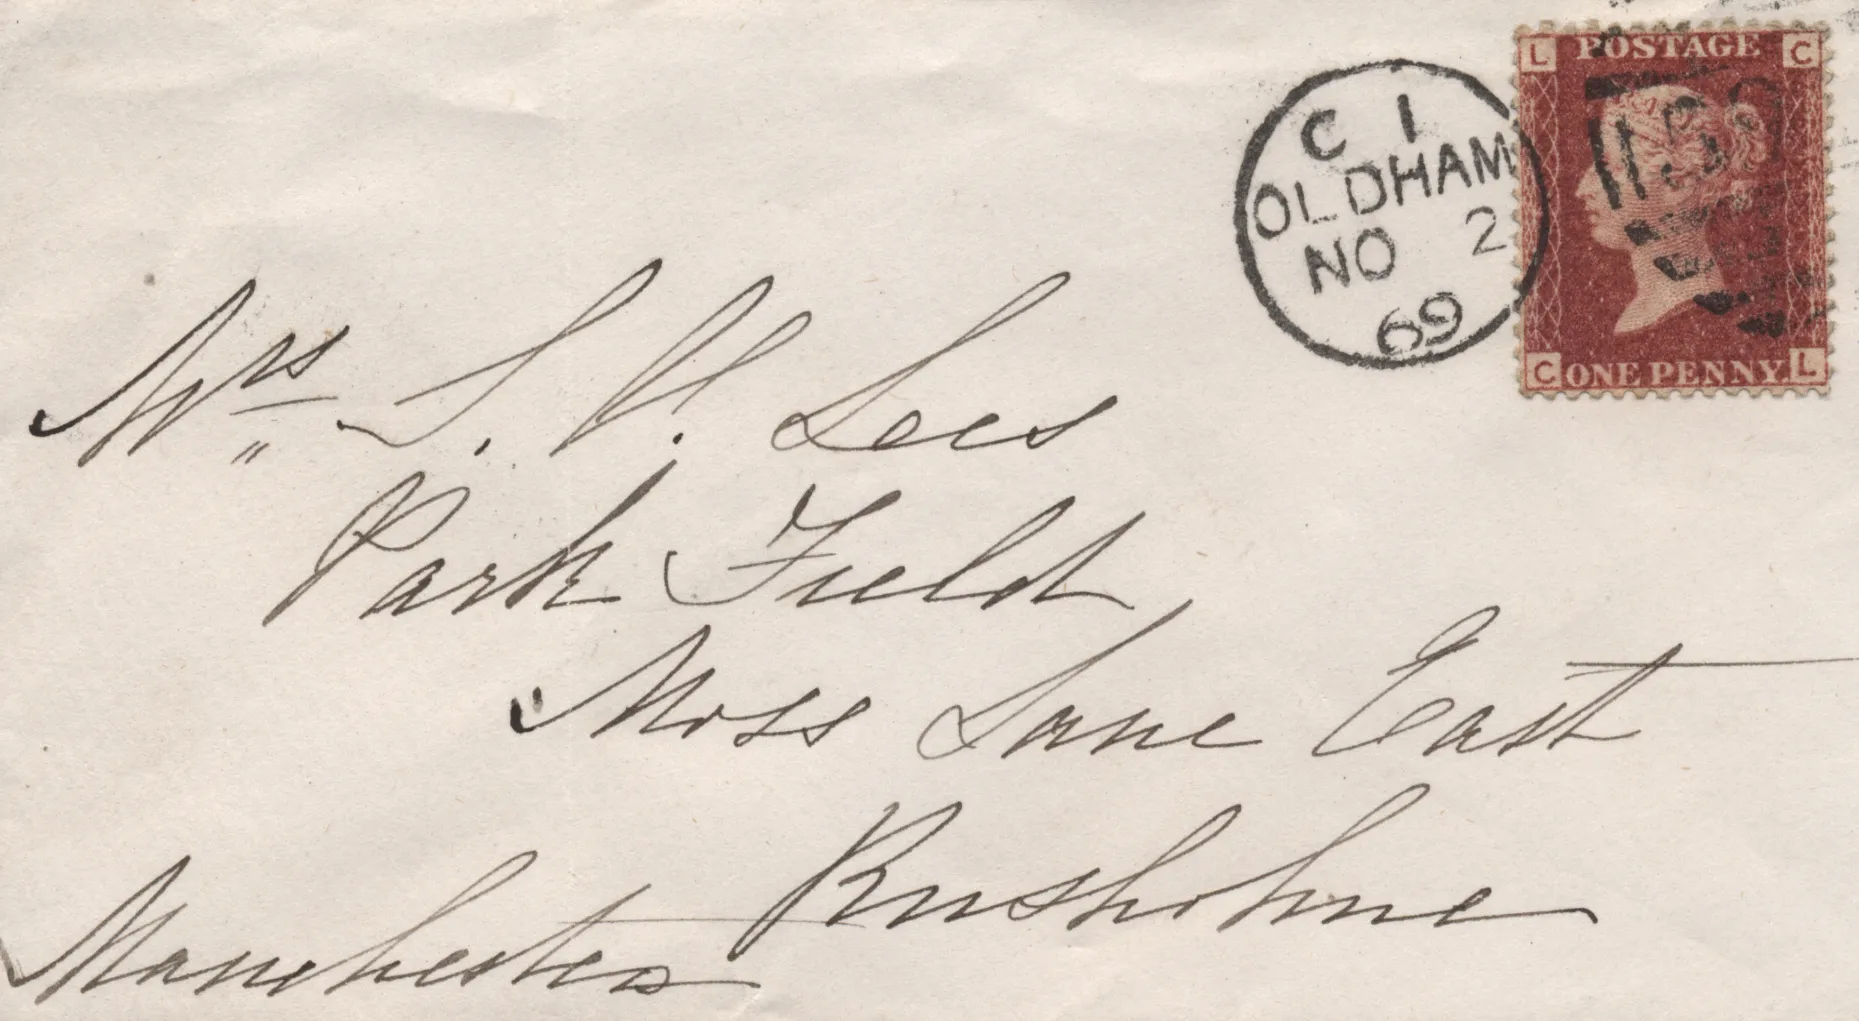 L POSTAGE C
C 1
OLDHAM
NO 2
69
C ONE PENNY L
Mrs S. V. Lees
Park Field,
Moss Lane East
Rusholme
Manchester